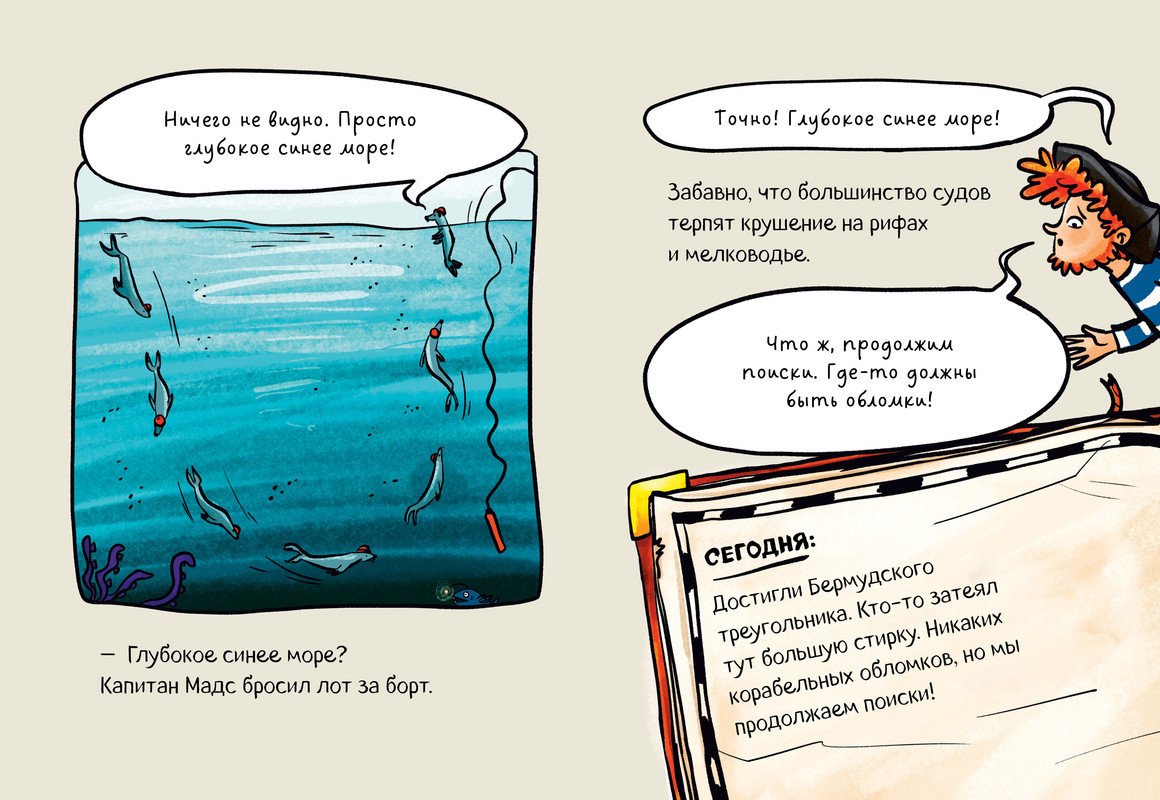 Ничего не видно. Просто
глубокое синее море!
— Глубокое синее море?
Капитан Мадс бросил лот за борт.
Точно! Глубокое синее море!
Забавно, что большинство судов
терпят крушение на рифах
и мелководье.
Что ж, продолжим
поиски. Где-то должны
быть обломки!
СЕГОДНЯ:
Достигли Бермудского
треугольника. Кто-то затеял
тут большую стирку. Никаких
корабельных обломков, но мы
продолжаем поиски!